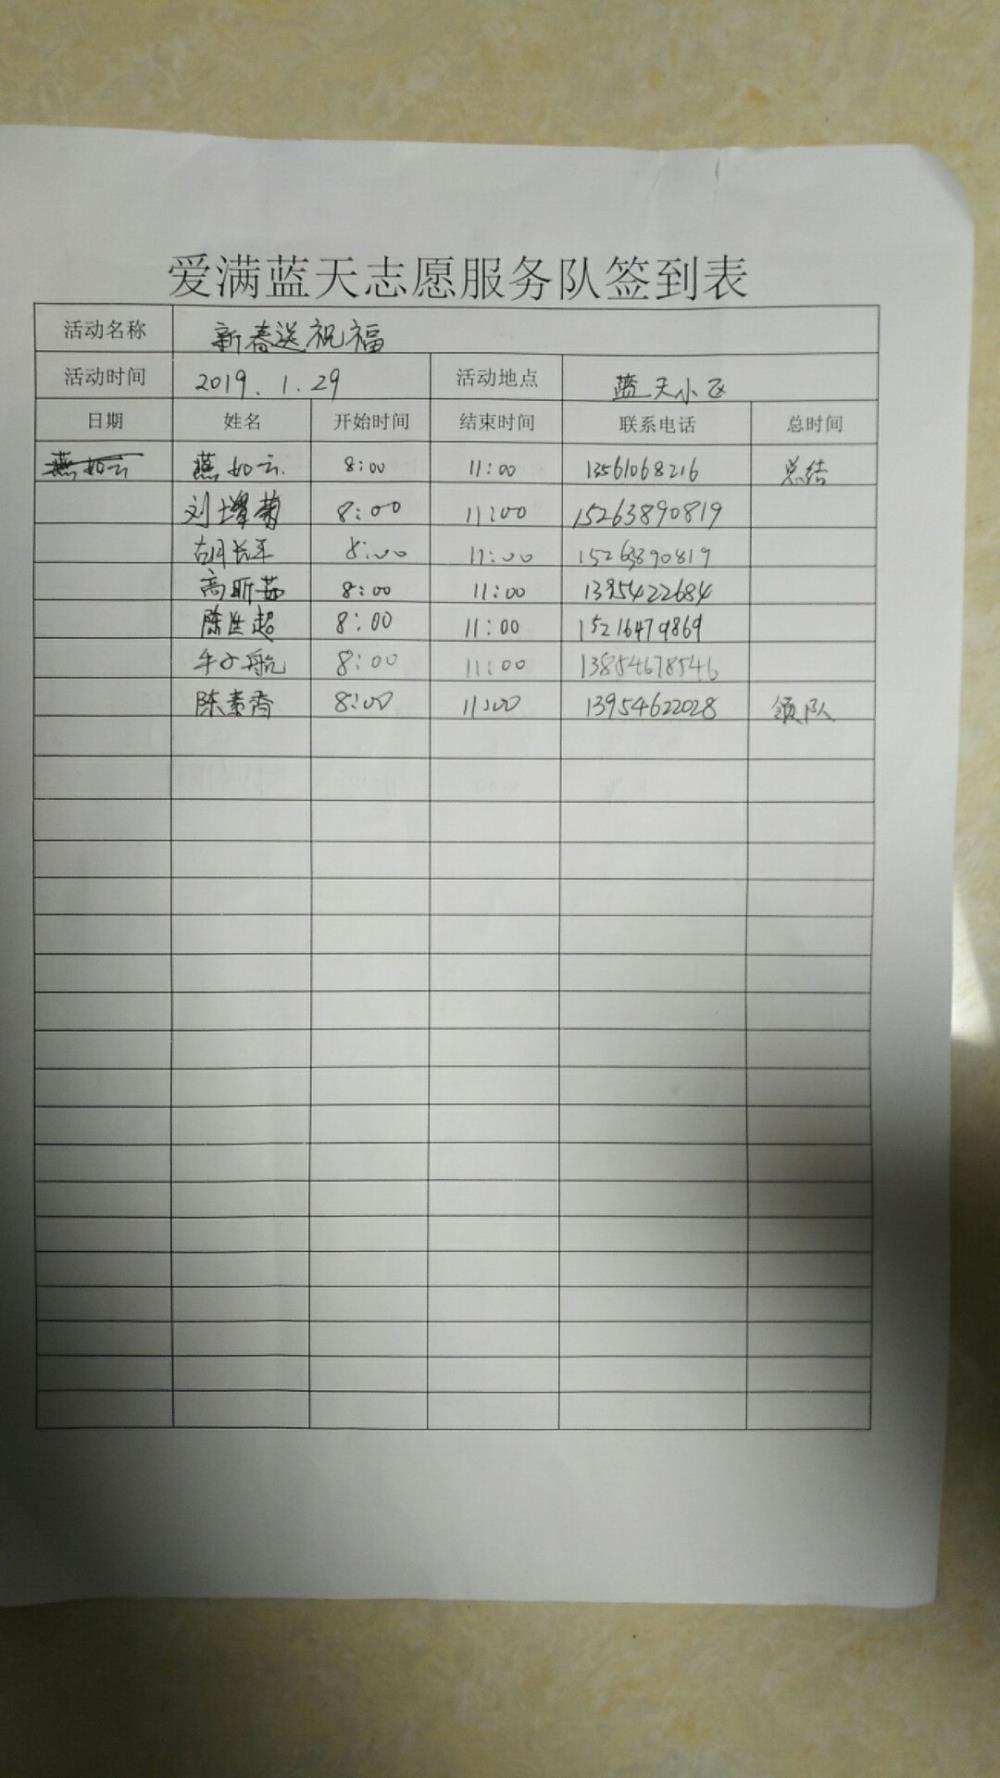 爱满蓝天志愿服务队签到表
活动名称 新春送祝福
活动时间 2019.1.29 活动地点 蓝天小区
日期 姓名 开始时间 结束时间 联系电话 总时间
燕如云 燕如云 8:00 11:00 13561068216 总结
刘增菊 8:00 11:00 15263890819
胡长军 8:00 11:00 15263890819
高昕茹 8:00 11:00 13954422684
陈进超 8:00 11:00 15216479869
牛子航 8:00 11:00 13854678546
陈素香 8:00 11:00 13954622028 领队